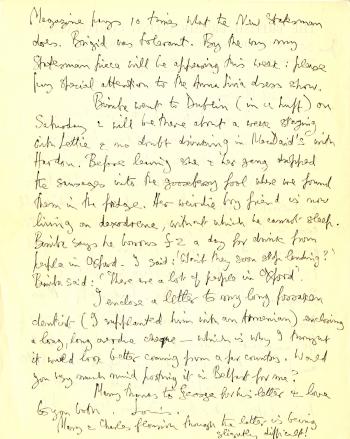 Magazine pays 10 times what the New Statesman
does. Brigid was tolerant. By the way my
Statesman piece will be appearing this week: please
pay special attention to the Anna Livia dress show.
Bimba went to Dublin (in a huff) on
Saturday & will be there about a week staying
with Lettie & no doubt drinking in MacDaid's with
Hardon. Before leaving she & her gang slapped
the sausages into the gooseberry fool where we found
them in the fridge. Her weirdie boy friend is now
living on dexedrene, without which he cannot sleep.
Bimba says he borrows £2 a day for drink from
people in Oxford. I said: 'Won't they soon stop lending?'
Bimba said: 'There are a lot of people in Oxford'
I enclose a letter to my long forsaken
dentist (I supplanted him with an Armenian) enclosing
a long, long overdue cheque – which is why I thought
it would look better coming from a far country. Would
you very much mind posting it in Belfast for me?
Many thanks to George for his letter & love
to you both. Louis.
Mary & Charles flourish though the latter is being
slightly difficult!